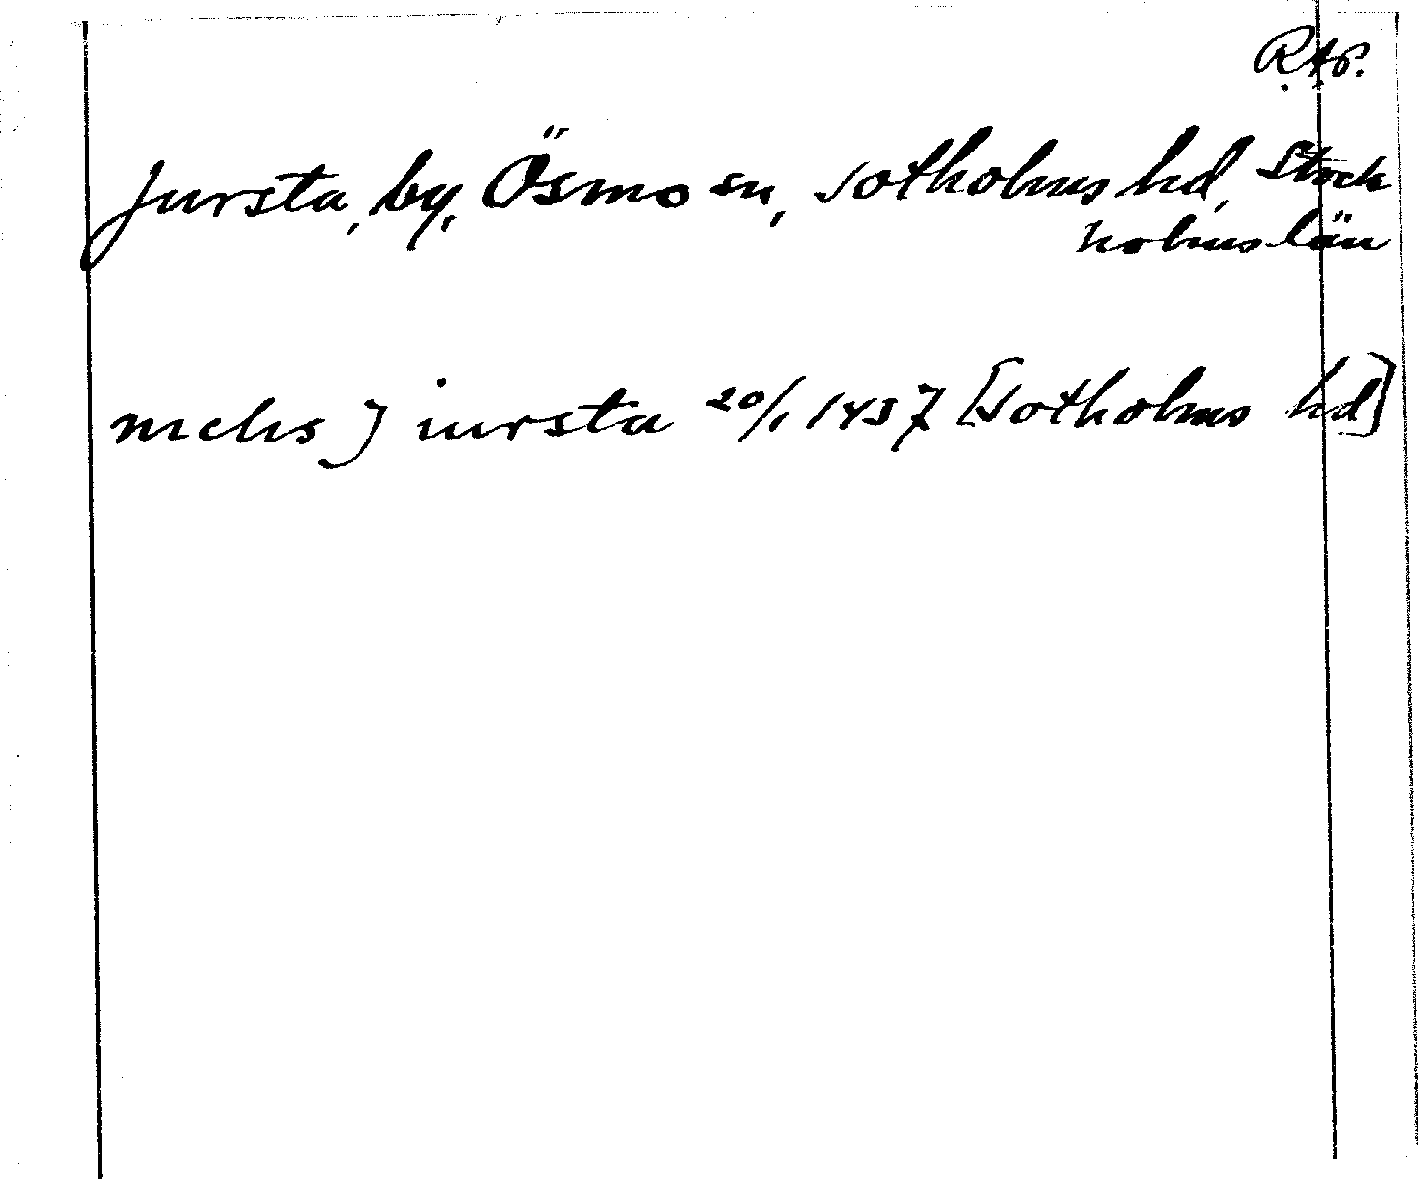 RAp.
Jursta, by, Ösmo sn, Sotholms hd, Stock
holms län
niclis J iursta 20/1 1437 [Sotholms hd]